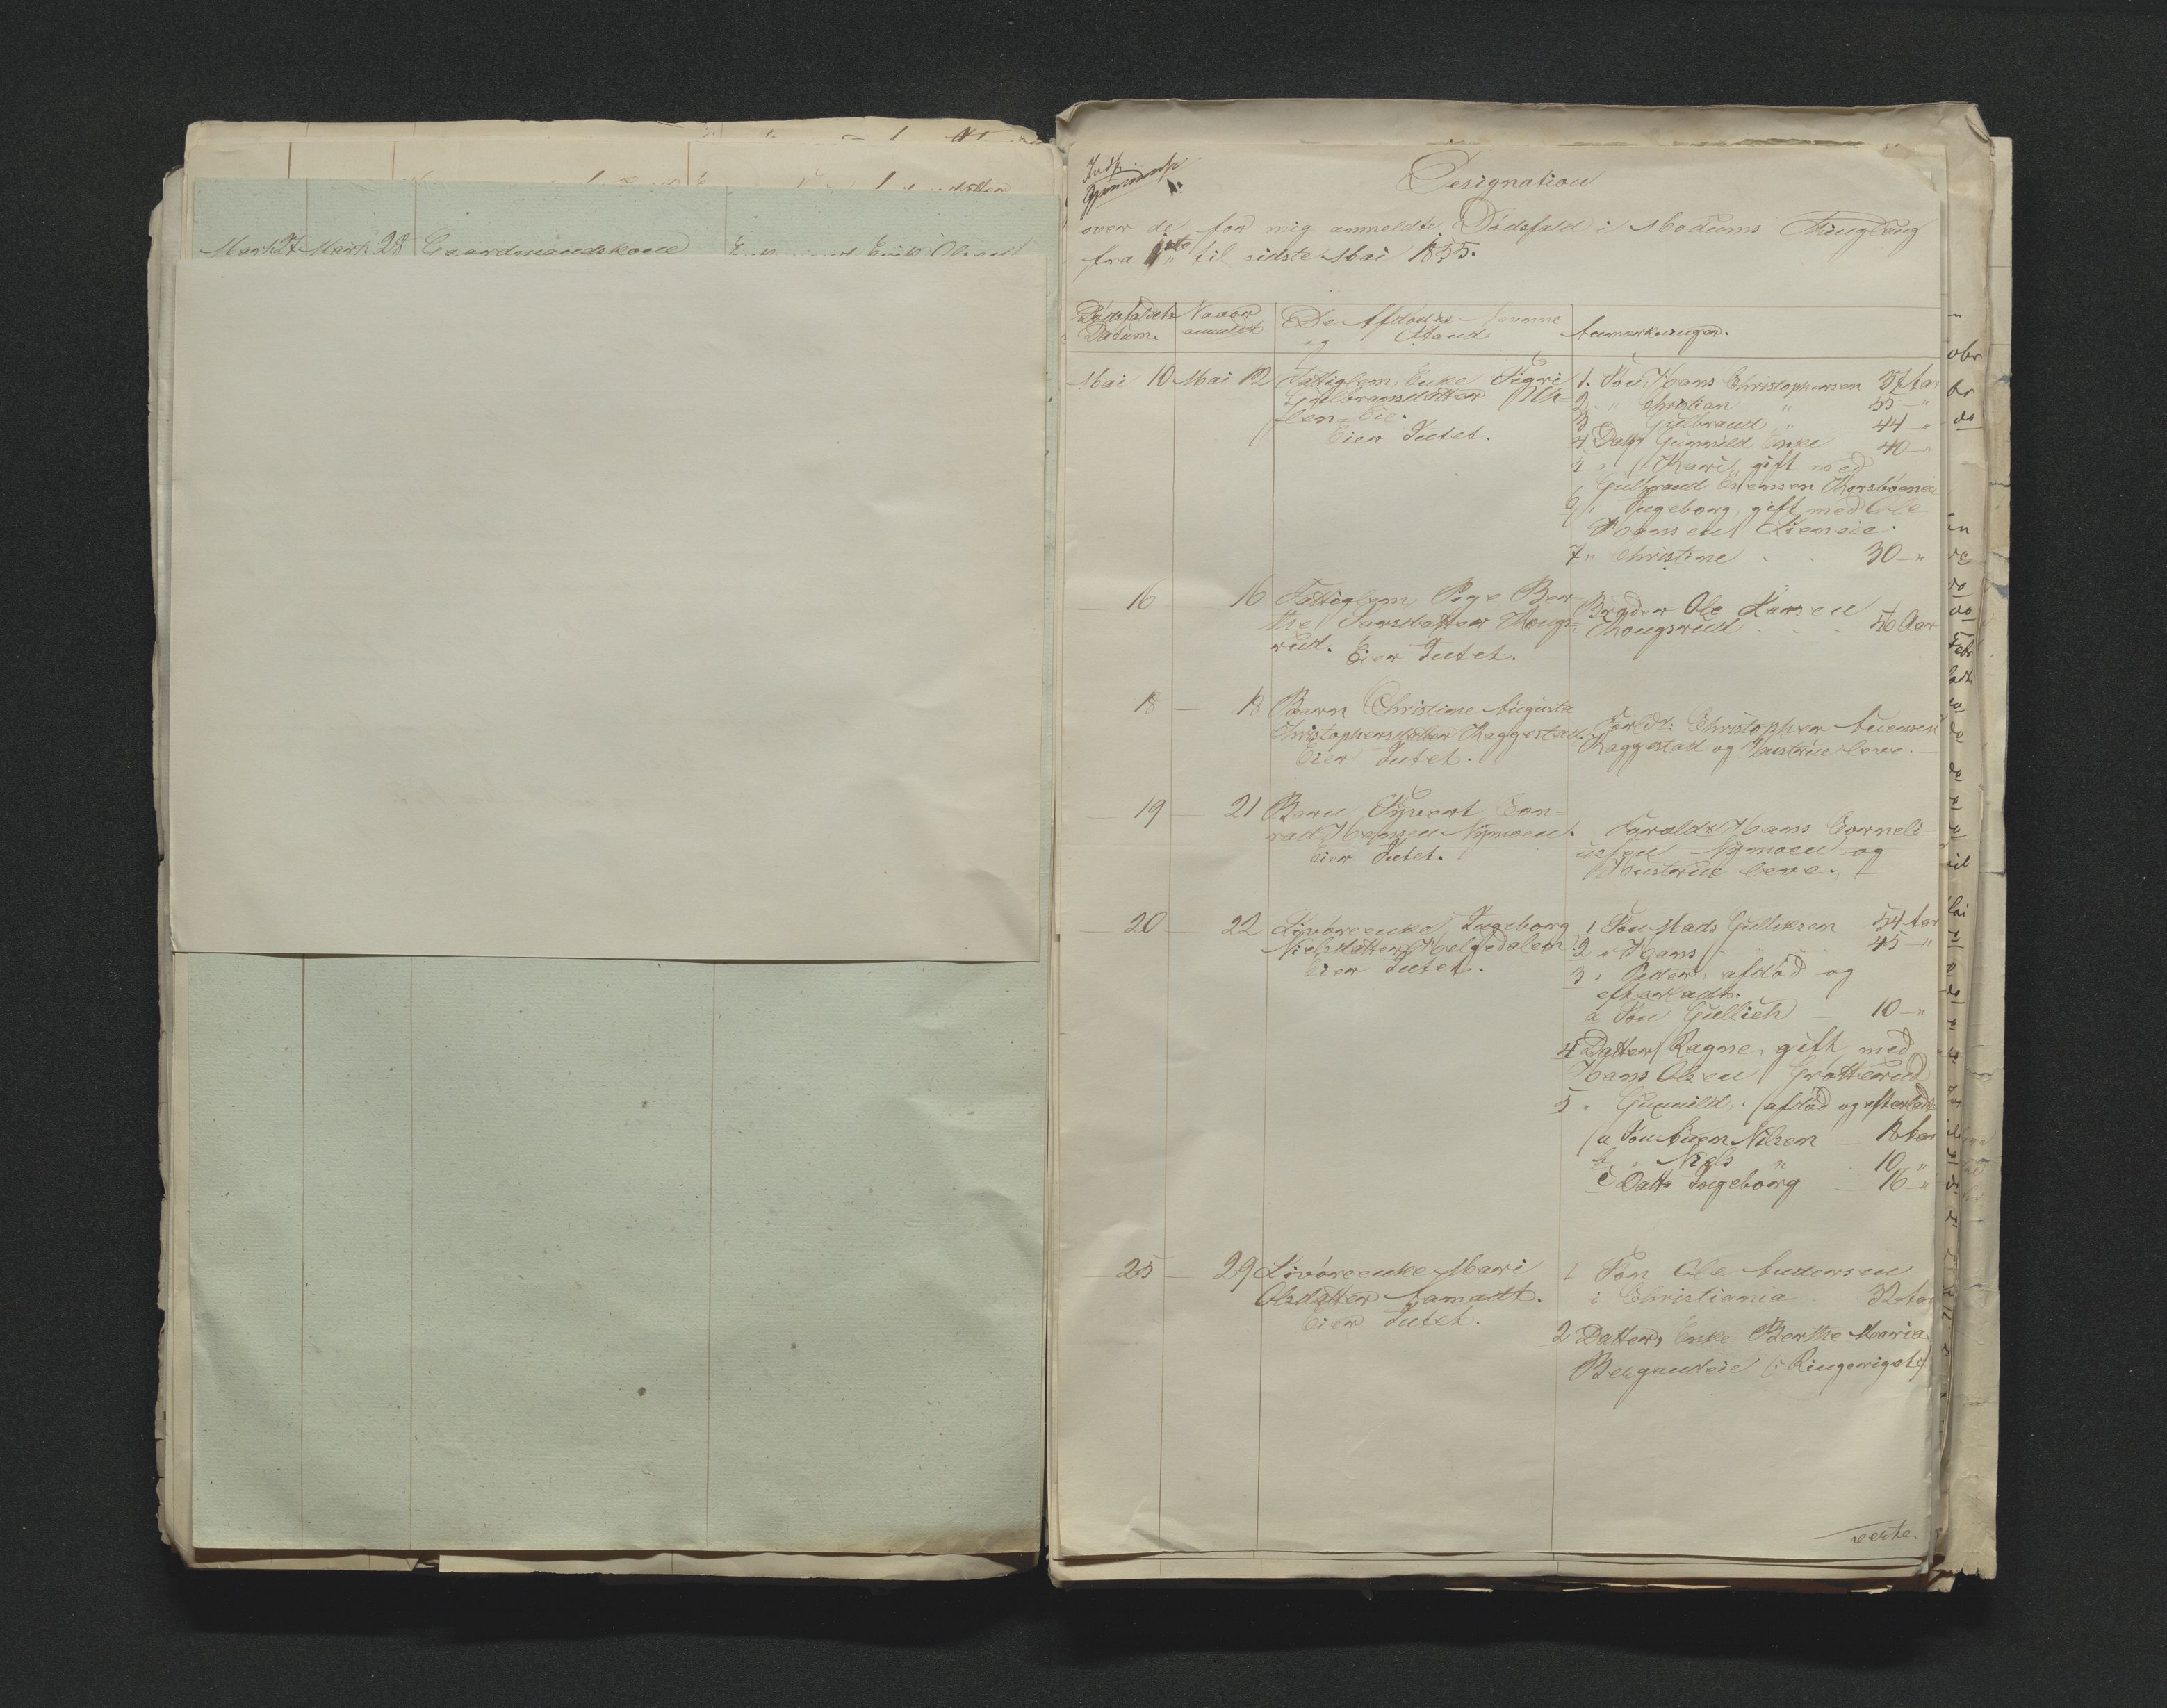 Mart. 27 Mart. 28 Gaardmandskone
Designation
over de for mig anmeldte Dødsfald i Modums Thinglaug
fra 1ste til sidste Mai 1855.
Dødsfaldets Datum.
Naaar anmeldt
De Afdødes Navne og Stand
Anmærkninger.
Mai 10 Mai 12 Fattiglem, Enke Sigri
Gulbransdatter
Eier Intet.
1. Søn Hans Christophersen 57 Aar
2 " Christian " 55 "
3 Gulbrand " 44 "
4 Datt Gunnild Enke 40 "
5 " Kari, gift med
Gulbrand Evensen
6 " Ingeborg, gift med Ole
Hansen Lieneie.
7 " Christine 30 "
16 16 Fattiglem Pige Ber
the Larsdatter Hougs-
rud. Eier Intet.
Broder Ole Larsen
Hougsrud 56 Aar
18 — 18 Barn Christine Augusta
Christophersdatter Haggestad.
Eier Intet.
Foræld: Christopher Auensen
Haggestad og Houstrue leve.
19 — 21 Barn Syvert Con-
rad Hansen Nymoen.
Eier Intet.
Foreldr Hans Corneli-
ussen Nymoen og
Houstrue leve.
20 — 22 Livøreenke, Ingeborg
Nielsdatter Helgedalen.
Eier Intet.
1 Søn Mads Gulliksen 54 Aar
2 " Hans 45 "
3 " Peder, afdød og
efterladt.
a Søn Gullich — 10 — "
4 Datter Ragne, gift med
Hans Olsen Grøtterud
5 " Gunnild, afdød og efterladt
a Søn Auen Nilsen — 18 Aar
b " Niels " 10 "
c Datt Ingeborg — 16 "
25 — 29 Livøreenke Mari
Olsdatter Aamodt.
Eier Intet.
1 Søn Ole Andersen
i Christiania 32 Aar
2 Datter, Enke Berthe Maria
Bergandeie (i Ringeriget)
verte